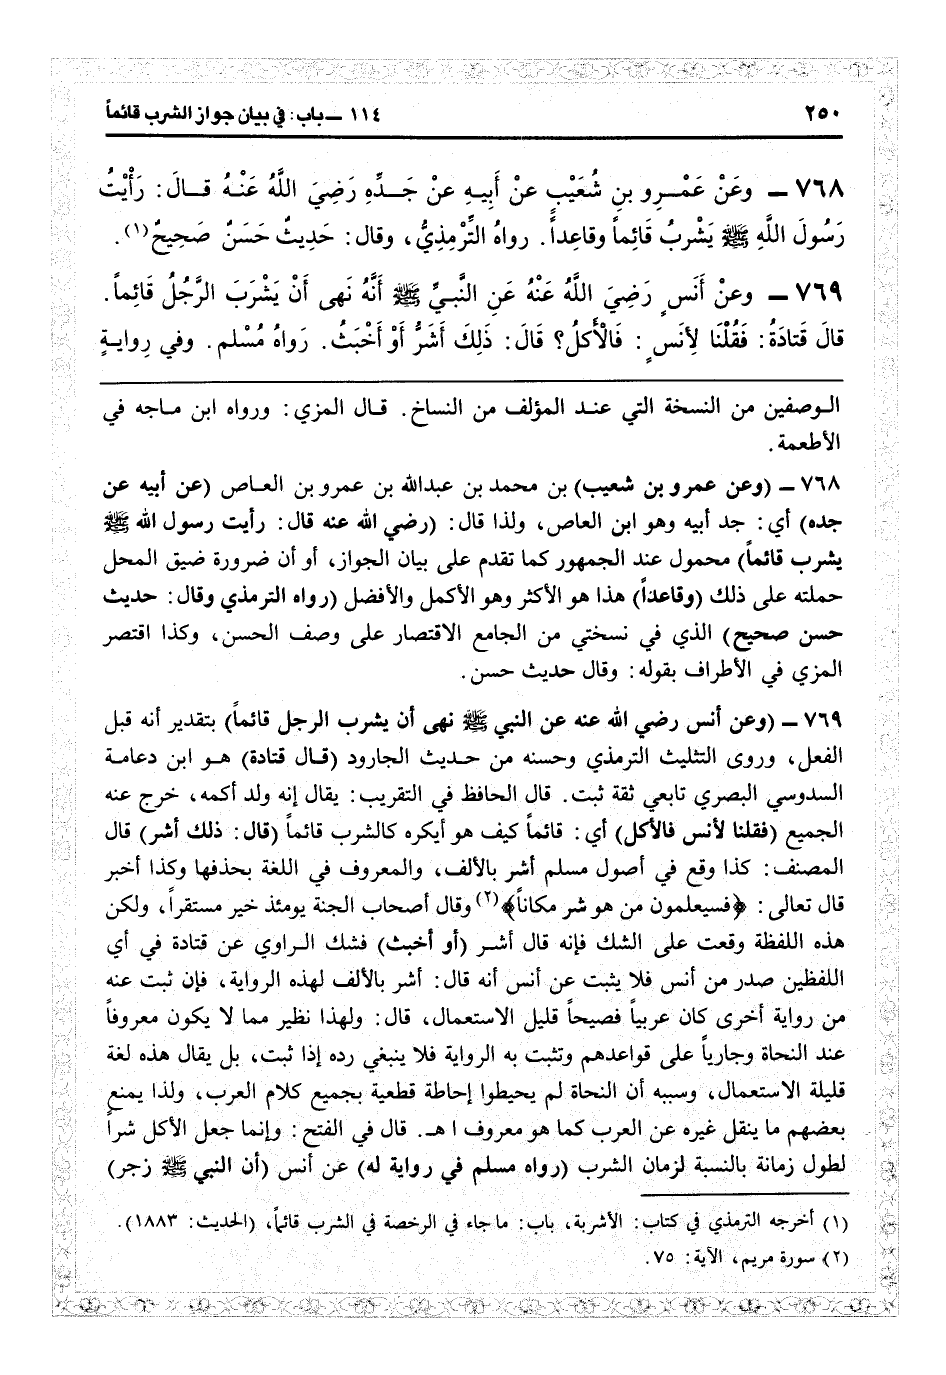 ٢٥٠
١١٤ ــ باب: في بيان جواز الشرب قائماً
٧٦٨ ــ وعَنْ عَمْـرِو بنِ شُعَيْبٍ عنْ أَبيـهِ عنْ جَـدِّهِ رَضِيَ اللَّهُ عَنْـهُ قـالَ: رَأَيْتُ
رَسُولَ اللَّهِ ﷺ يَشْربُ قَائِماً وقاعِداً. رواهُ التِّرْمِذِيُّ، وقال: حَدِيثٌ حَسَنٌ صَحيحٌ(١).
٧٦٩ ــ وعنْ أَنَسٍ رَضِيَ اللَّهُ عَنْهُ عَنِ النَّبيِّ ﷺ أَنَّهُ نَهى أَنْ يَشْرَبَ الرَّجُلُ قَائِماً.
قالَ قَتادَةُ: فَقُلْنَا لِأَنَسٍ: فَالْأَكلُ؟ قَالَ: ذَلِكَ أَشَرُّ أَوْ أَخْبَثُ. رَواهُ مُسْلم. وفي رِوايـةٍ
الـوصفين من النسخة التي عنـد المؤلف من النساخ. قـال المزي: ورواه ابن مـاجه في
الأطعمة.
٧٦٨ ــ (وعن عمرو بن شعيب) بن محمد بن عبدالله بن عمرو بن العـاص (عن أبيه عن
جده) أي: جد أبيه وهو ابن العاص، ولذا قال: (رضي الله عنه قال: رأيت رسول الله ﷺ
يشرب قائماً) محمول عند الجمهور كما تقدم على بيان الجواز، أو أن ضرورة ضيق المحل
حملته على ذلك (وقاعداً) هذا هو الأكثر وهو الأكمل والأفضل (رواه الترمذي وقال: حديث
حسن صحيح) الذي في نسختي من الجامع الاقتصار على وصف الحسن، وكذا اقتصر
المزي في الأطراف بقوله: وقال حديث حسن.
٧٦٩ ــ (وعن أنس رضي الله عنه عن النبي ﷺ نهى أن يشرب الرجل قائماً) بتقدير أنه قبل
الفعل، وروى التثليث الترمذي وحسنه من حـديث الجارود (قـال قتادة) هـو ابن دعامـة
السدوسي البصري تابعي ثقة ثبت. قال الحافظ في التقريب: يقال إنه ولد أكمه، خرج عنه
الجميع (فقلنا لأنس فالأكل) أي: قائماً كيف هو أيكره كالشرب قائماً (قال: ذلك أشر) قال
المصنف: كذا وقع في أصول مسلم أشر بالألف، والمعروف في اللغة بحذفها وكذا أخبر
قال تعالى: ﴿فسيعلمون من هو شر مكاناً﴾(٢) وقال أصحاب الجنة يومئذ خير مستقراً، ولكن
هذه اللفظة وقعت على الشك فإنه قال أشـر (أو أخبث) فشك الـراوي عن قتادة في أي
اللفظين صدر من أنس فلا يثبت عن أنس أنه قال: أشر بالألف لهذه الرواية، فإن ثبت عنه
من رواية أخرى كان عربياً فصيحاً قليل الاستعمال، قال: ولهذا نظير مما لا يكون معروفاً
عند النحاة وجارياً على قواعدهم وتثبت به الرواية فلا ينبغي رده إذا ثبت، بل يقال هذه لغة
قليلة الاستعمال، وسببه أن النحاة لم يحيطوا إحاطة قطعية بجميع كلام العرب، ولذا يمنع
بعضهم ما ينقل غيره عن العرب كما هو معروف ا هـ. قال في الفتح: وإنما جعل الأكل شراً
لطول زمانة بالنسبة لزمان الشرب (رواه مسلم في رواية له) عن أنس (أن النبي ﷺ زجر)
(١) أخرجه الترمذي في كتاب: الأشربة، باب: ما جاء في الرخصة في الشرب قائماً، (الحديث: ١٨٨٣).
(٢) سورة مريم، الآية: ٧٥.